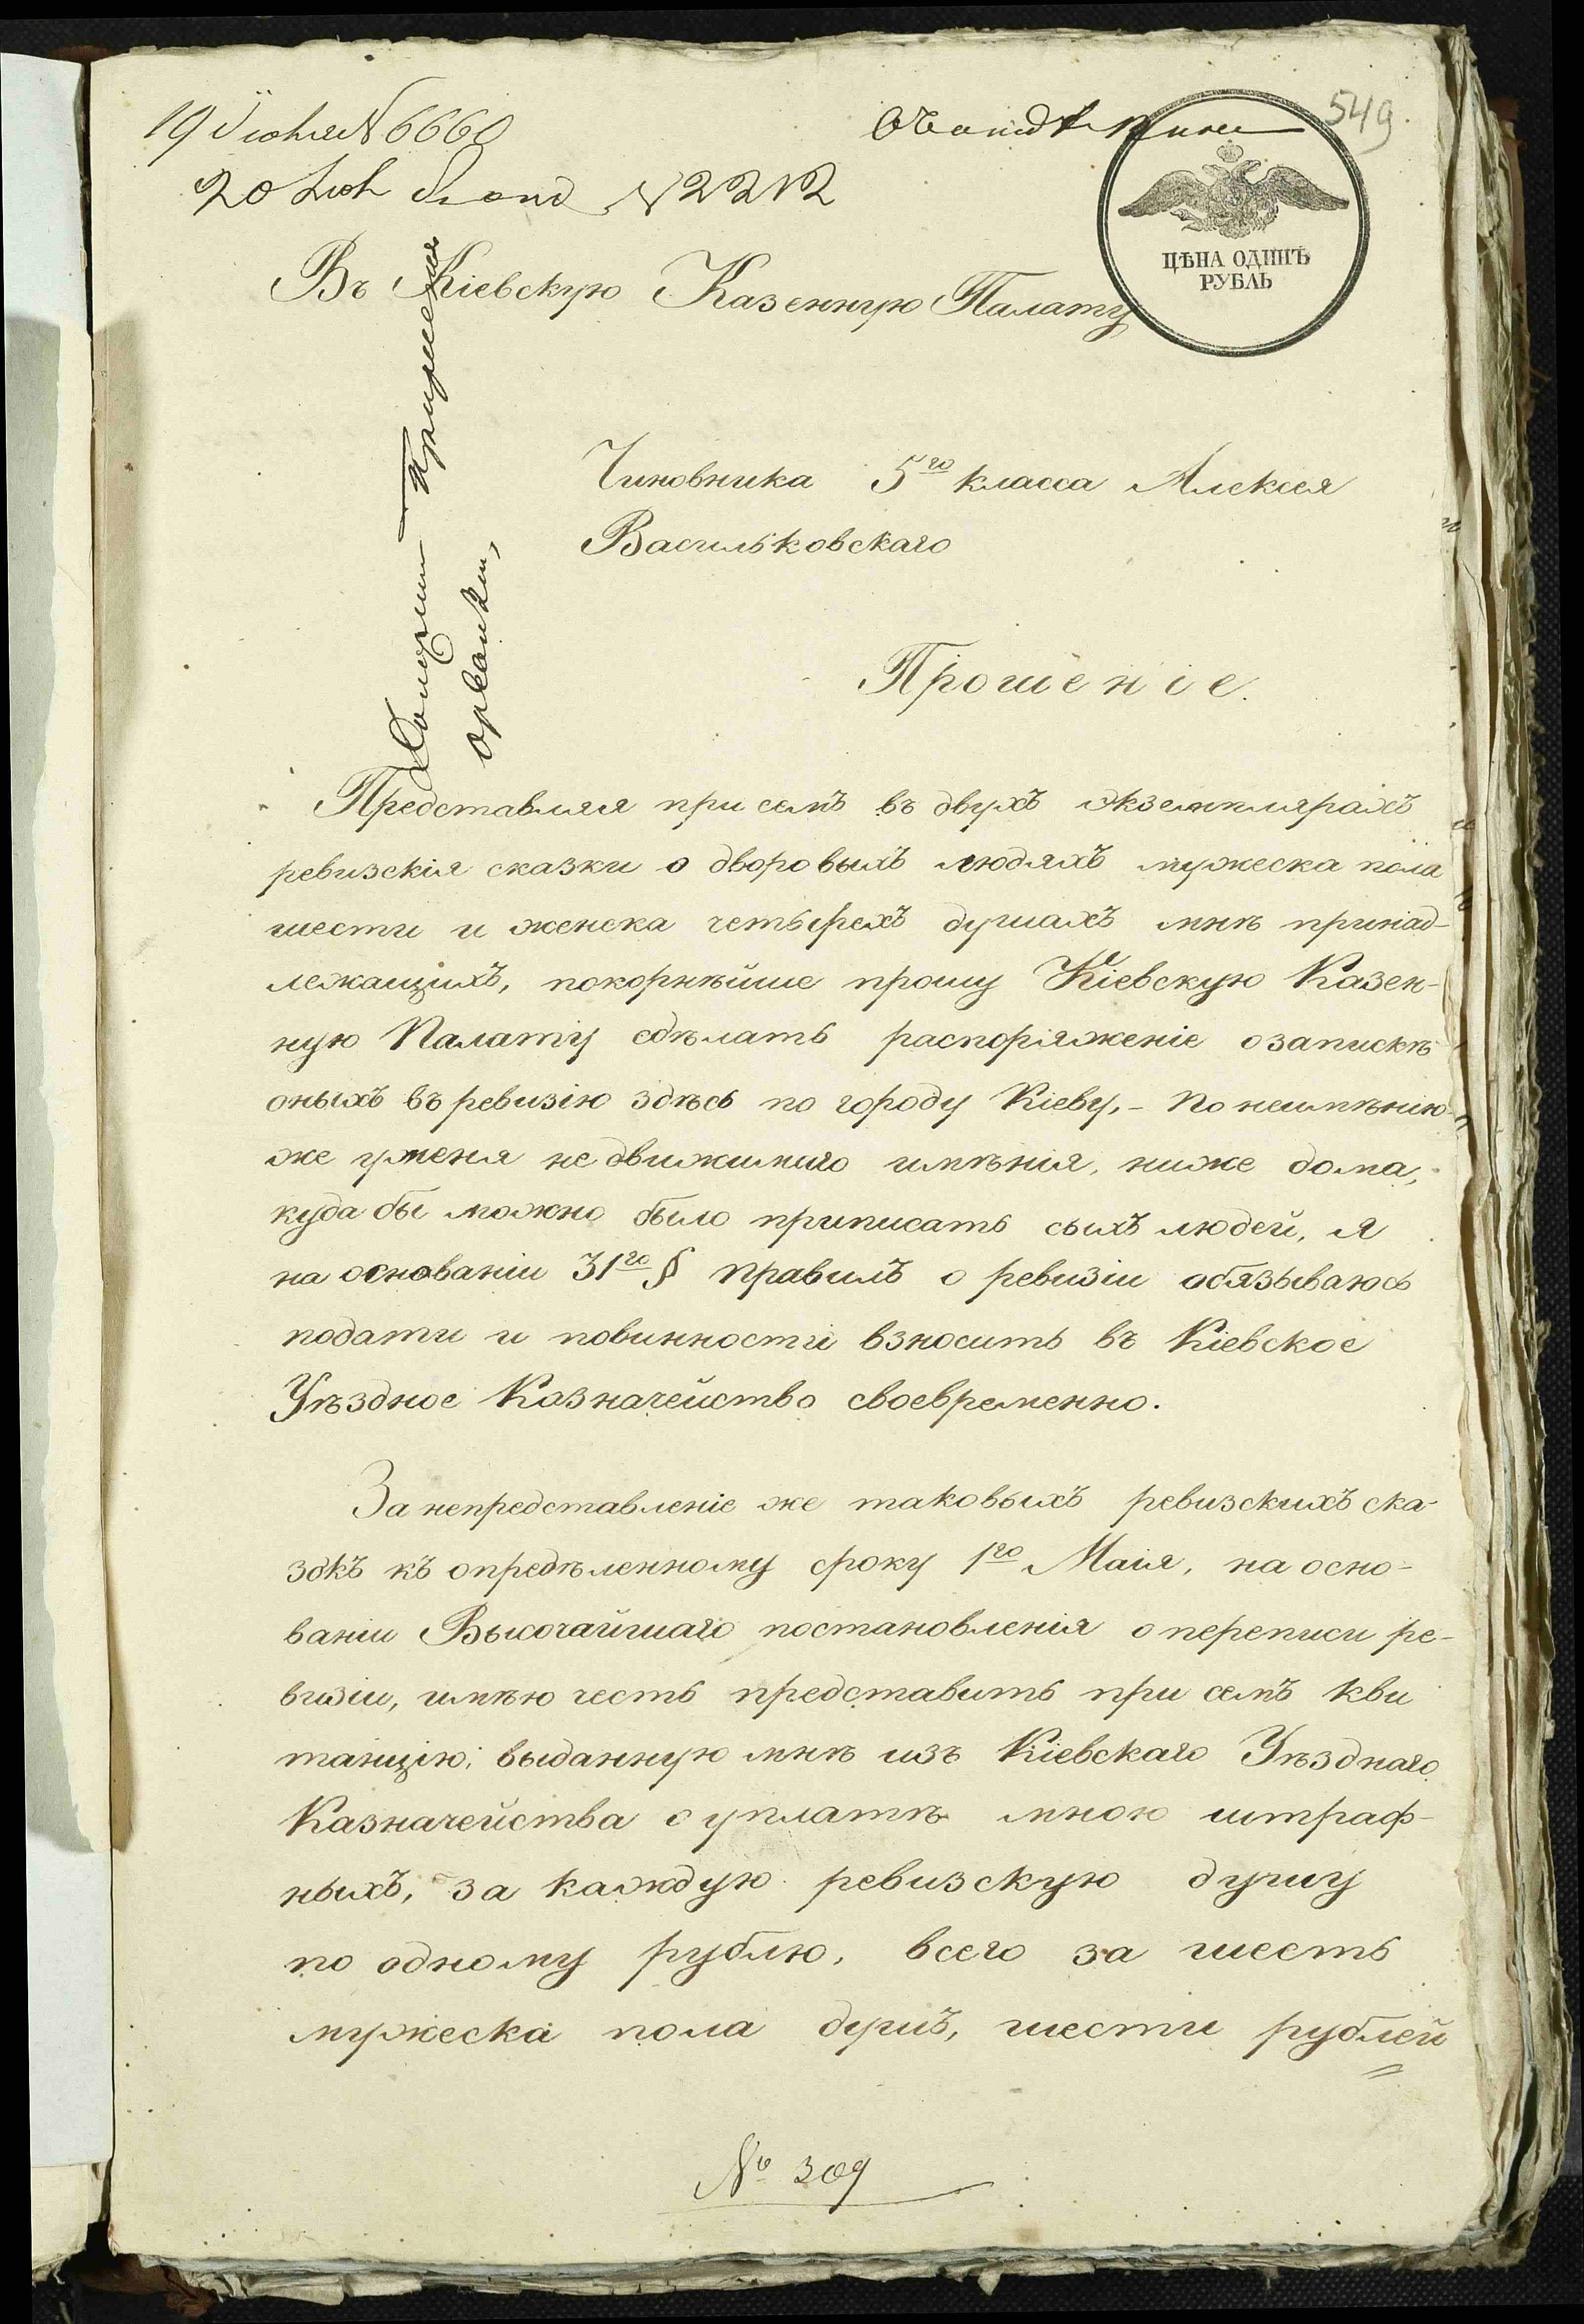 549
19 Іюня № 6660
20 Іюн № 2212
ЦѢНА ОДИНЪ
РУБЛЬ
Въ Кіевскую Казенную Палату
Чиновника 5го класса Алексея
Васильковскаго
Прошеніе.
Представляя при семъ въ двухъ экземплярахъ
ревизскія сказки о дворовыхъ людяхъ мужеска пола
шести и женска четырехъ душахъ мнѣ принад-
лежащихъ, покорнѣйше прошу Кіевскую Казен-
ную Палату сдѣлать распоряженіе о запискѣ
оныхъ въ ревизію здѣсь по городу Кіеву,- По неимѣнію
же у меня недвижимаго имѣнія, ниже дома,
куда бы можно было приписать сыхъ людей, я
на основаніи 31го § правилъ о ревизіи обязываюсь
подати и повинности взносить въ Кіевское
Уѣздное Казначейство своевременно.
За непредставленіе же таковыхъ ревизскихъ ска-
зокъ къ опредѣленному сроку 1го Маія, на осно-
ваніи Высочайшаго постановленія о переписи ре-
визіи, имѣю честь представить при семъ кви
танцію, выданную мнѣ изъ Кіевскаго Уѣзднаго
Казначейства о уплатѣ мною штраф-
ныхъ, за каждую ревизскую душу
по одному рублю, всего за шесть
мужеска пола душъ, шести рублей
№ 309